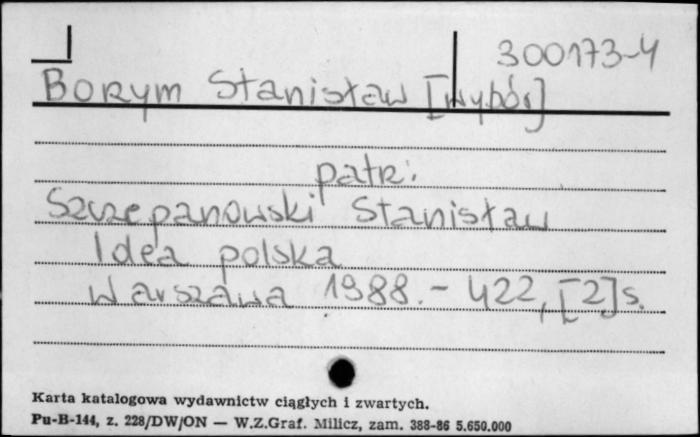 300173-4
Borym Stanisław [Wybór]
patrz:
Szczepanowski Stanisław
Idea polska
Warszawa 1988. - 422, [2] s.
Karta katalogowa wydawnictw ciągłych i zwartych.
Pu-B-144, z. 228/DW/ON — W.Z.Graf. Milicz, zam. 388-86 5.650.000